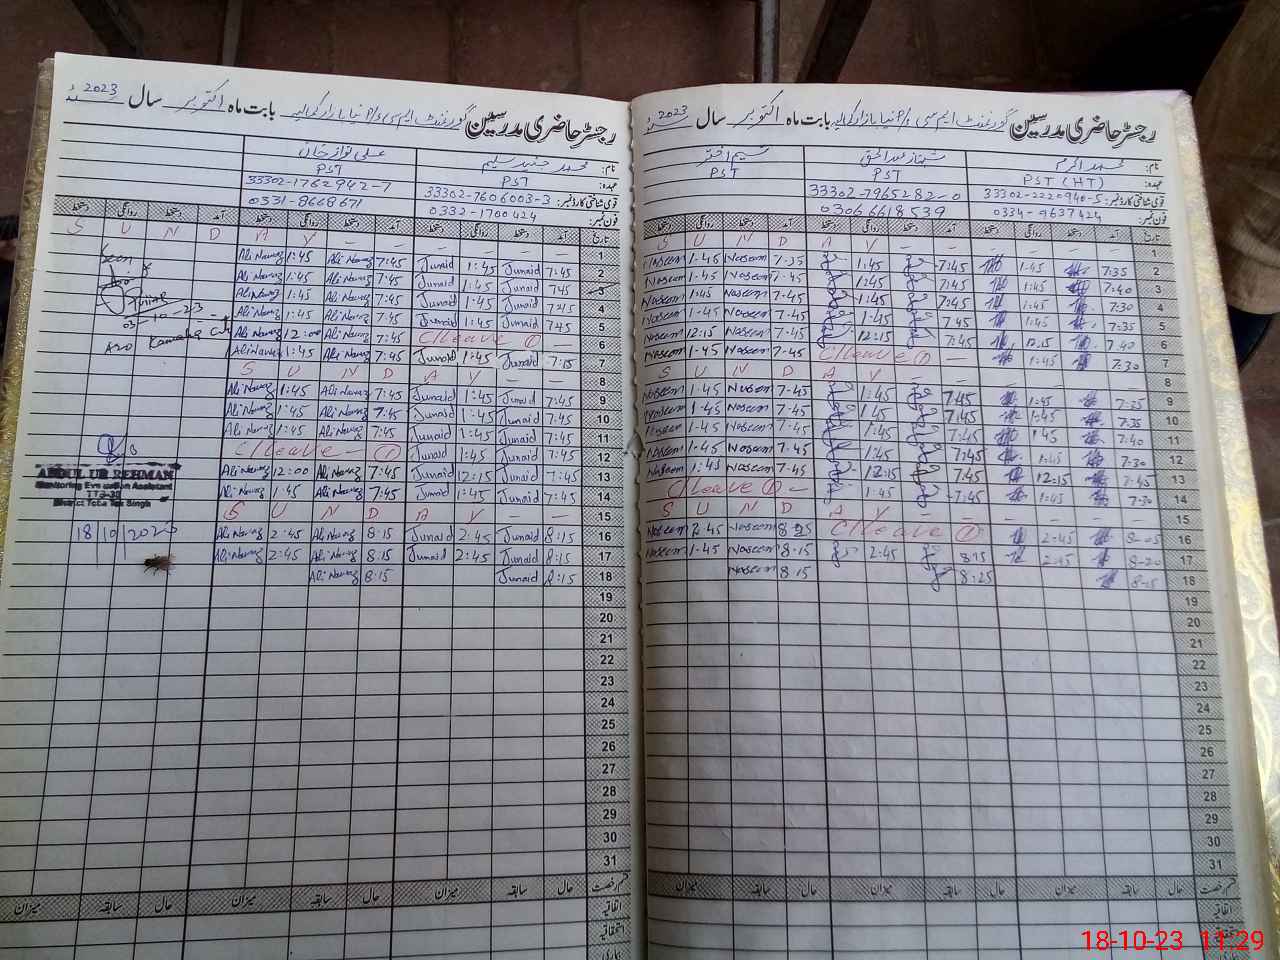 رجسٹر حاضری مدرسین گورنمنٹ ایم سی نیا بازار کمالیہ بابت ماہ اکتوبر سال 2023ء
نام: محمد اکرم شہناز عبدالحق نسیم اختر
عہدہ: PST (HT) PST PST
قومی شناختی کارڈ نمبر: 33302-2220940-5 33302-7965282-0
فون نمبر: 0334-9637424 03066618539
تاریخ آمد دستخط روانگی دستخط آمد دستخط روانگی دستخط آمد دستخط روانگی دستخط
1 S U N D A Y – – –
2 7:35 1:45 7:45 1:45 7:35 Naseem 1-45 Naseem
3 7:40 1:45 7:45 1:45 7-45 Naseem 1-45 Naseem
4 7:30 1:45 7:45 1:45 7-45 Naseem 1:45 Naseem
5 7:35 1:45 7:45 1:45 7-45 Naseem 1-45 Naseem
6 7:40 12:15 7:45 12:15 7-45 Naseem 12:15 Naseem
7 7:30 1:45 C/Leave ① – 7-45 Naseem 1-45 Naseem
8 S U N D A Y – – –
9 7:35 1:45 7:45 1:45 7-45 Naseem 1-45 Naseem
10 7:35 1:45 7:45 1:45 7-45 Naseem 1-45 Naseem
11 7:40 1:45 7:45 1:45 7-45 Naseem 1-45 Naseem
12 7:30 1:45 7:45 1:45 7-45 Naseem 1-45 Naseem
13 7:45 12:15 7:45 12:15 7-45 Naseem 1:45 Naseem
14 7:30 1:45 7:45 1:45 C/Leave ① –
15 S U N D A Y – – –
16 8-05 2:45 C/Leave ① 8 25 Naseem 2-45 Naseem
17 8-20 2:45 8:15 2:45 8-15 Naseem 1-45 Naseem
18 8-15 8:25 8 15 Naseem
19
20
21
22
23
24
25
26
27
28
29
30
31
قسم رخصت حال سابقہ میزان حال سابقہ میزان حال سابقہ میزان
اتفاقیہ
استحقاقیہ
رجسٹر حاضری مدرسین گورنمنٹ ایم سی نیا بازار کمالیہ بابت ماہ اکتوبر سال 2023ء
نام: محمد جنید سلیم علی نواز خان
عہدہ: PST PST
قومی شناختی کارڈ نمبر: 33302-7606003-3 33302-1762942-7
فون نمبر: 0332-1700424 0331-8668671
تاریخ آمد دستخط روانگی دستخط آمد دستخط روانگی دستخط آمد دستخط روانگی دستخط
1 S U N D A Y – – –
2 7:45 Junaid 1:45 Junaid 7:45 Ali Nawaz 1:45 Ali Nawaz Seen
3 7:45 Junaid 1:45 Junaid 7:45 Ali Nawaz 1:45 Ali Nawaz
4 7:45 Junaid 1:45 Junaid 7:45 Ali Nawaz 1:45 Ali Nawaz
5 7:45 Junaid 1:45 Junaid 7:45 Ali Nawaz 1:45 Ali Nawaz 03-10-23
6 C/Leave ① – 7:45 Ali Nawaz 12:00 Ali Nawaz
7 7:15 Junaid 1:45 Junaid 7:45 Ali Nawaz 1:45 Ali Nawaz
8 S U N D A Y – –
9 7:45 Junaid 1:45 Junaid 7:45 Ali Nawaz 1:45 Ali Nawaz
10 7:45 Junaid 1:45 Junaid 7:45 Ali Nawaz 1:45 Ali Nawaz
11 7:45 Junaid 1:45 Junaid 7:45 Ali Nawaz 1:45 Ali Nawaz
12 7:45 Junaid 1:45 Junaid C/Leave – ①
13 7:45 Junaid 12:15 Junaid 7:45 Ali Nawaz 12:00 Ali Nawaz
14 7:45 Junaid 1:45 Junaid 7:45 Ali Nawaz 1:45 Ali Nawaz
ABDUL UR REHMAN
Monitoring Evaluation Assistant
District Toba Tek Singh
15 S U N D A Y – –
16 8:15 Junaid 2:45 Junaid 8:15 Ali Nawaz 2:45 Ali Nawaz 18/10/2023
17 8:15 Junaid 2:45 Junaid 8:15 Ali Nawaz 2:45 Ali Nawaz
18 8:15 Junaid 8:15 Ali Nawaz
19
20
21
22
23
24
25
26
27
28
29
30
31
قسم رخصت حال سابقہ میزان حال سابقہ میزان حال سابقہ میزان
اتفاقیہ
استحقاقیہ
18-10-23 11:29